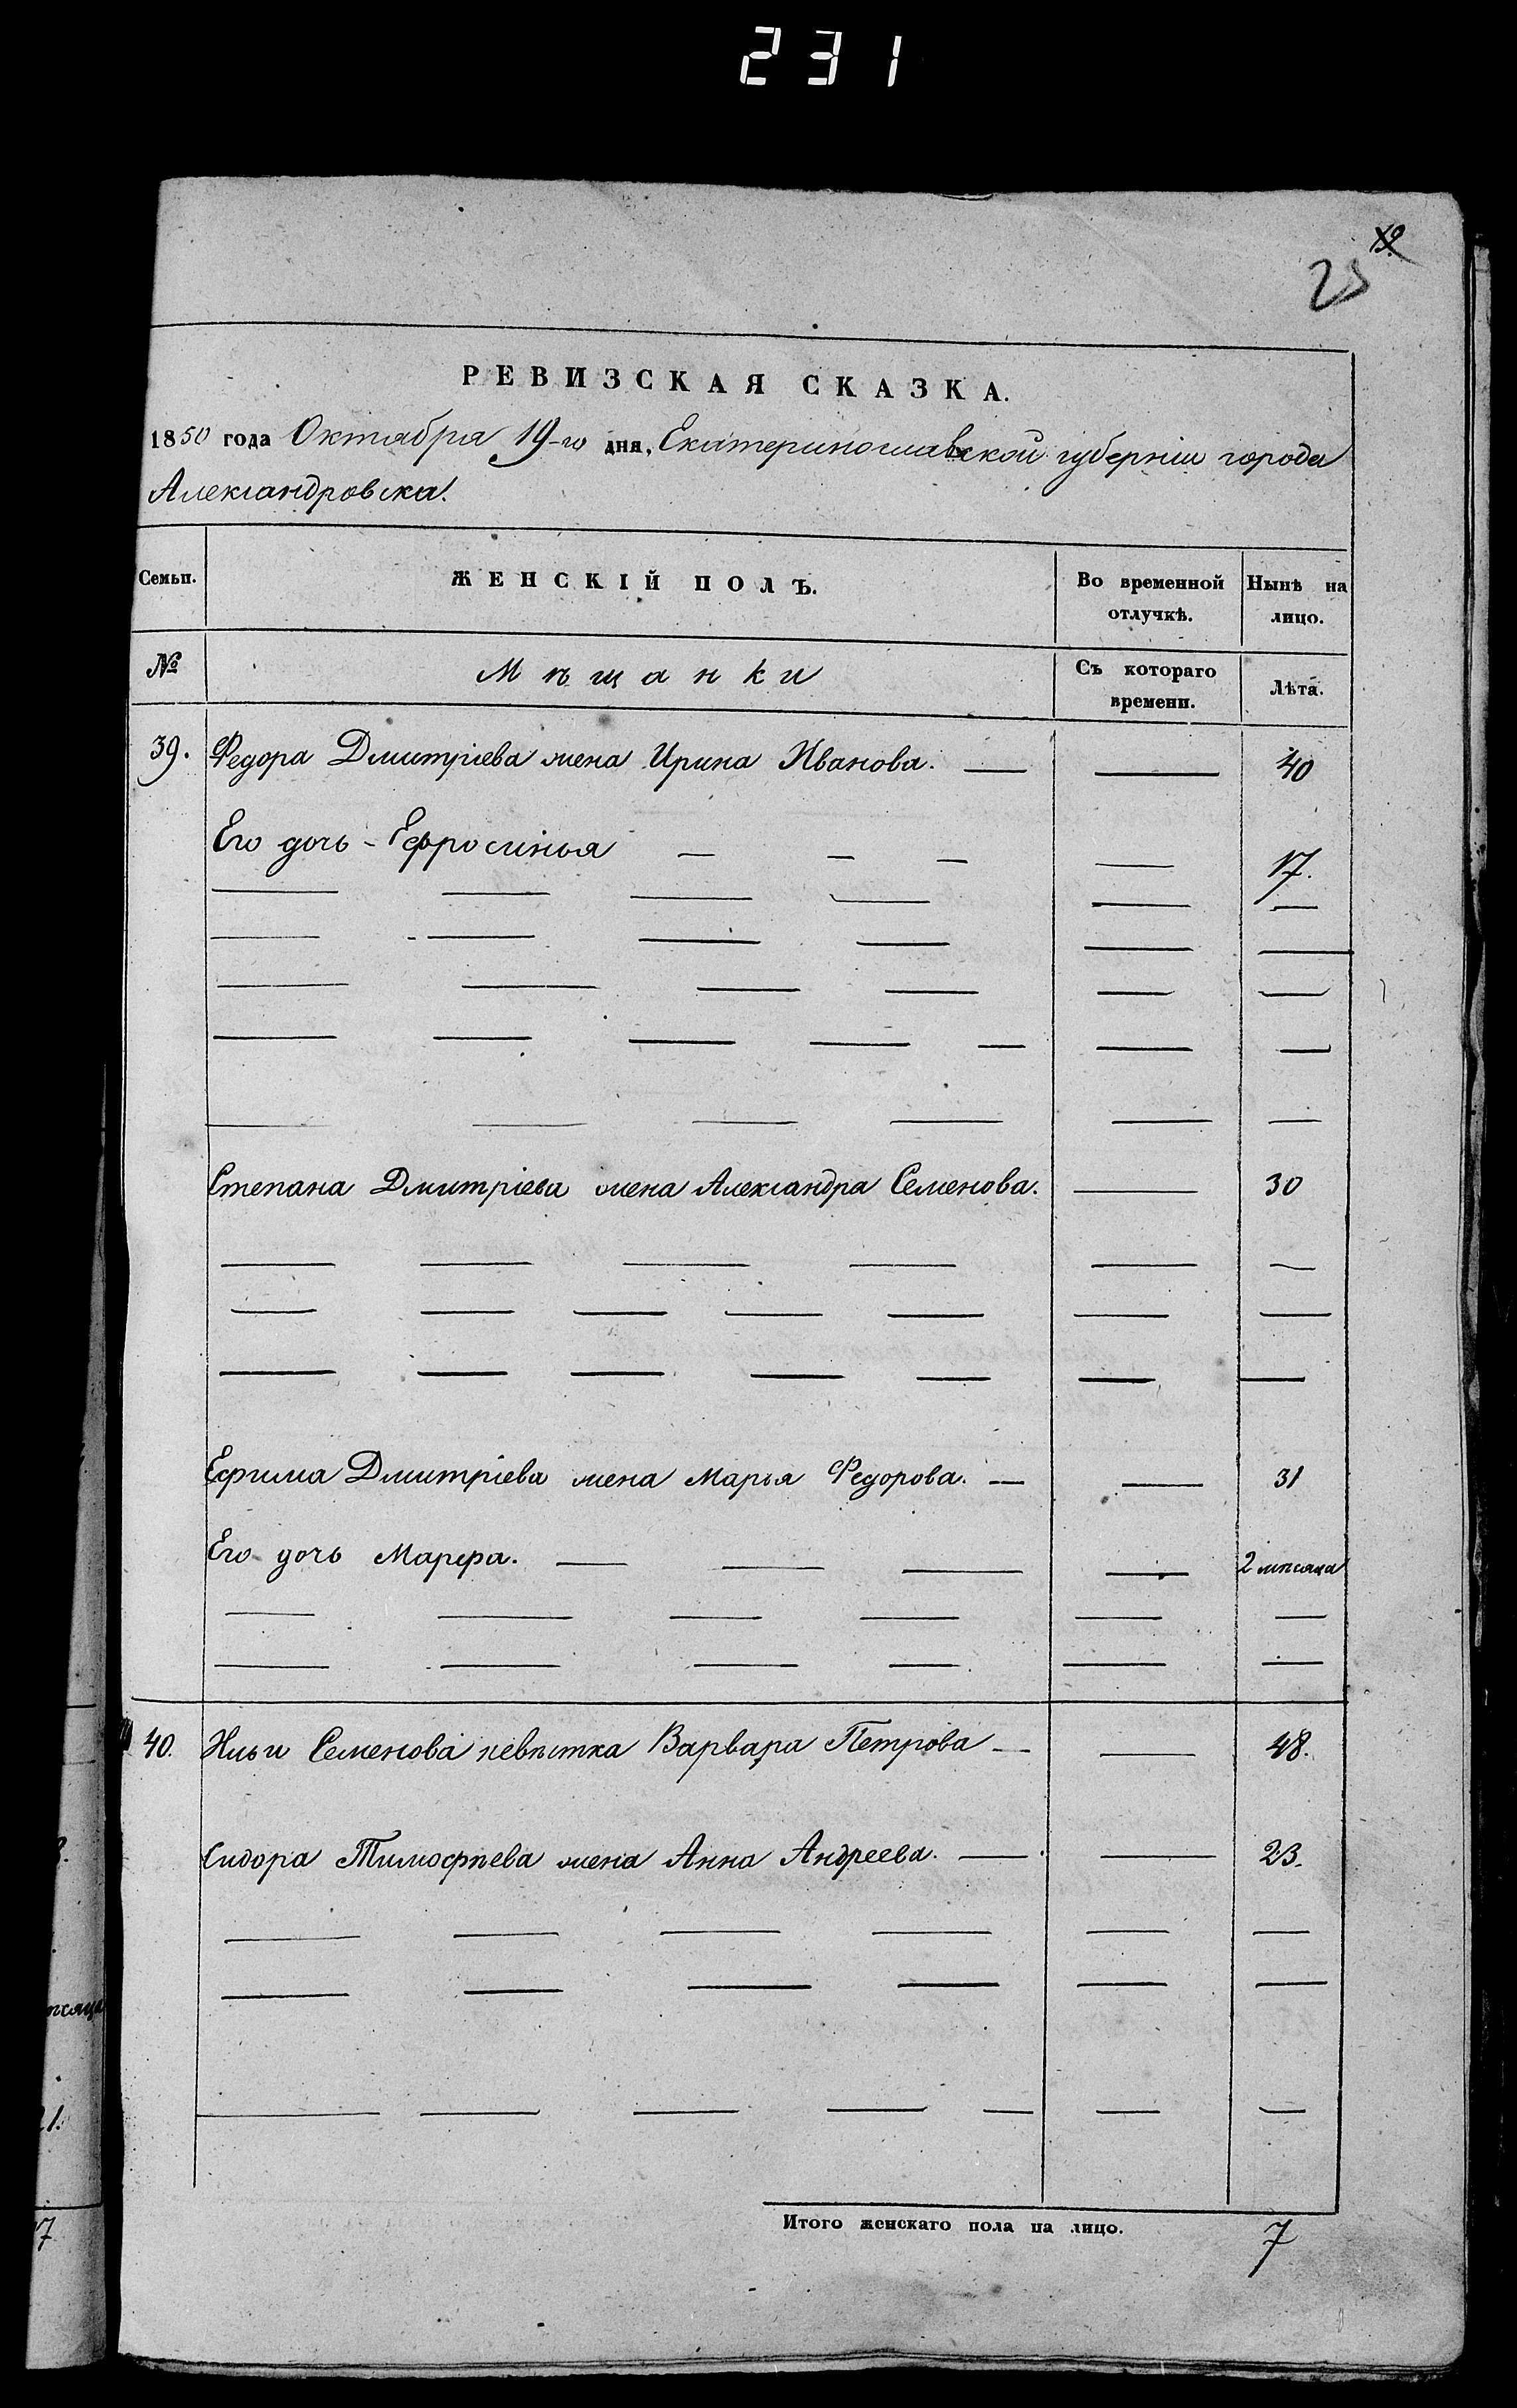 231
23
РЕВИЗСКАЯ СКАЗКА.
1850 года Октября 19-го дня, Екатеринославской губерніи города
Александровска.
Семьи. ЖЕНСКІЙ ПОЛЪ. Во временной отлучкѣ. Нынѣ на лицо.
№ Мѣщанки Съ котораго времени. Лѣта.
39. Федора Дмитріева жена Ирина Иванова. — — 40
Его дочь - Ефросинья — — — — 17.
Степана Дмитріева жена Александра Семенова. — 30
Ефима Дмитріева жена Марья Федорова. — — 31
Его дочь Марфа. — — — — 2 мѣсяца
40. Ильи Семенова невѣстка Варвара Петрова — — 48.
Сидора Тимофѣева жена Анна Андреева. — — 23.
Итого женскаго пола на лицо. 7